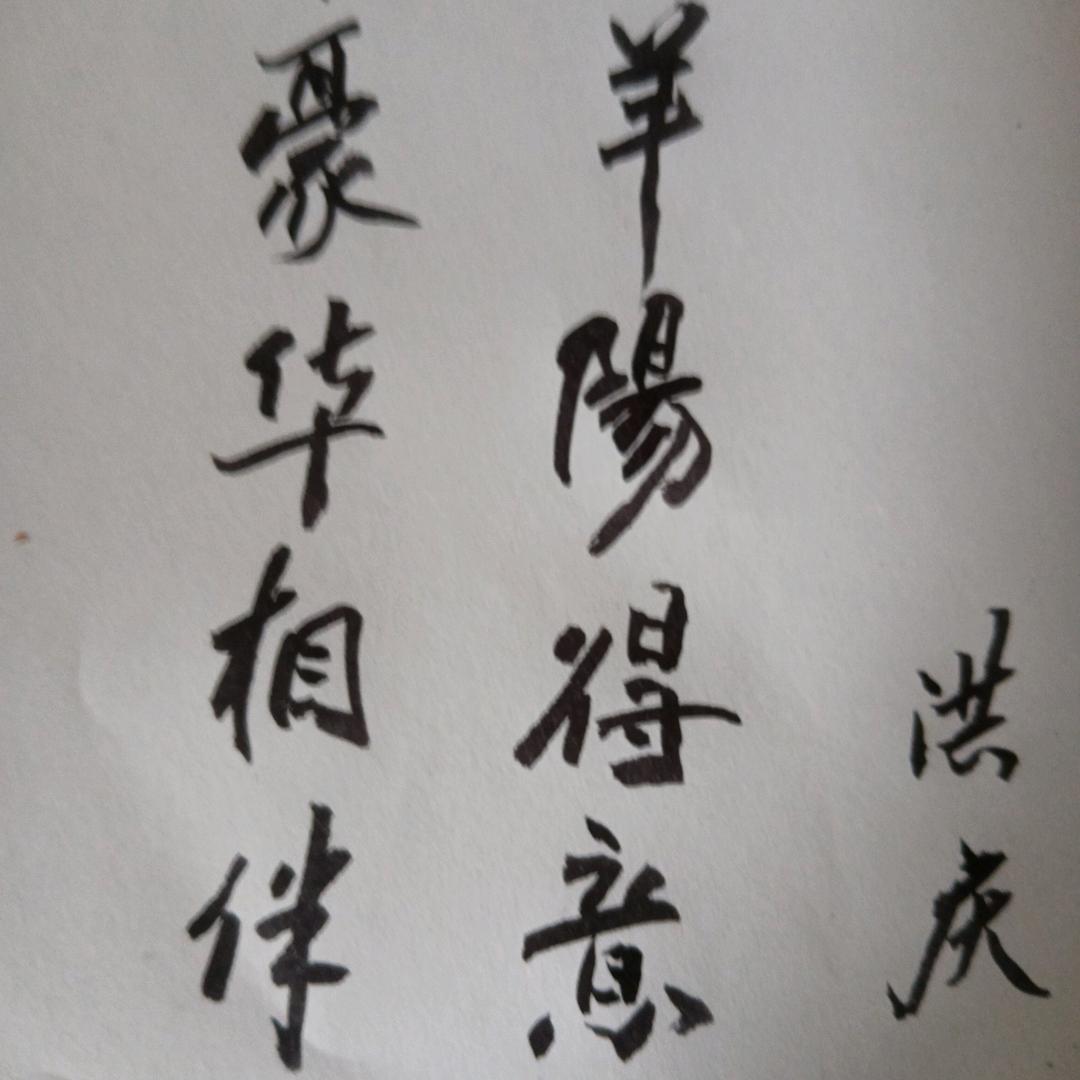 洪庆
羊陽得意
豪华相伴